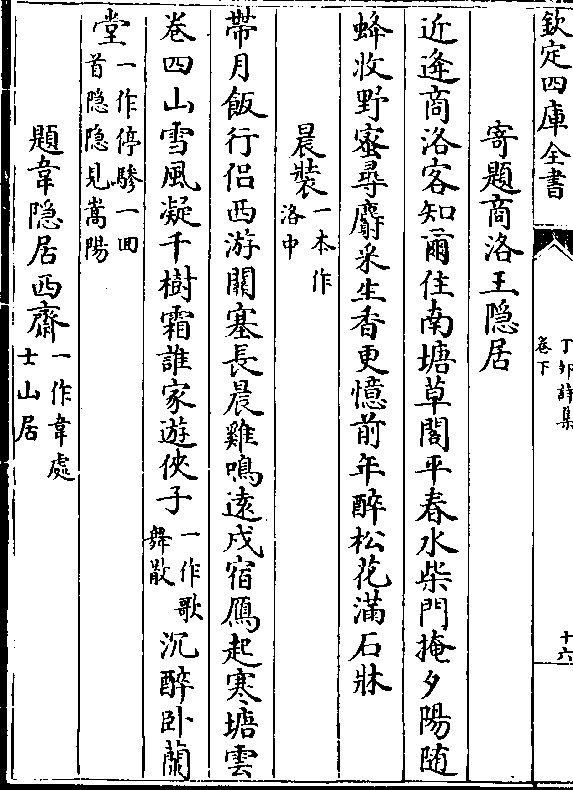 欽定四庫全書
丁卯詩集
卷下
十六
寄題商洛王隐居
近逄商洛客知爾住南塘草閣平春水柴門掩夕陽随
蜂收野蜜尋麝采生香更憶前年醉松花滿石牀
晨裝一本作洛中
帶月飯行侣西游關塞長晨雞鳴遠戍宿鴈起寒塘雲
卷四山雪風凝千樹霜誰家遊俠子一作歌舞散沉醉卧蘭
堂一作停驂一回首隐隐見嵩陽
題韋隐居西齋一作韋處士山居